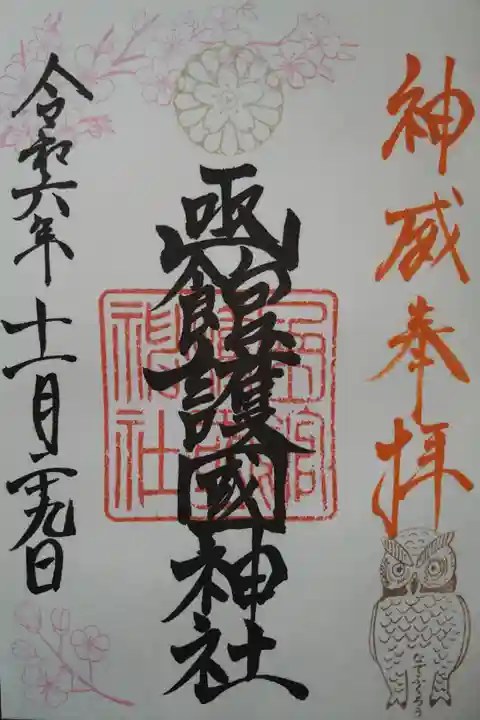 神威奉拝
函館護國神社
令和六年十一月二十九日
函館護國神社